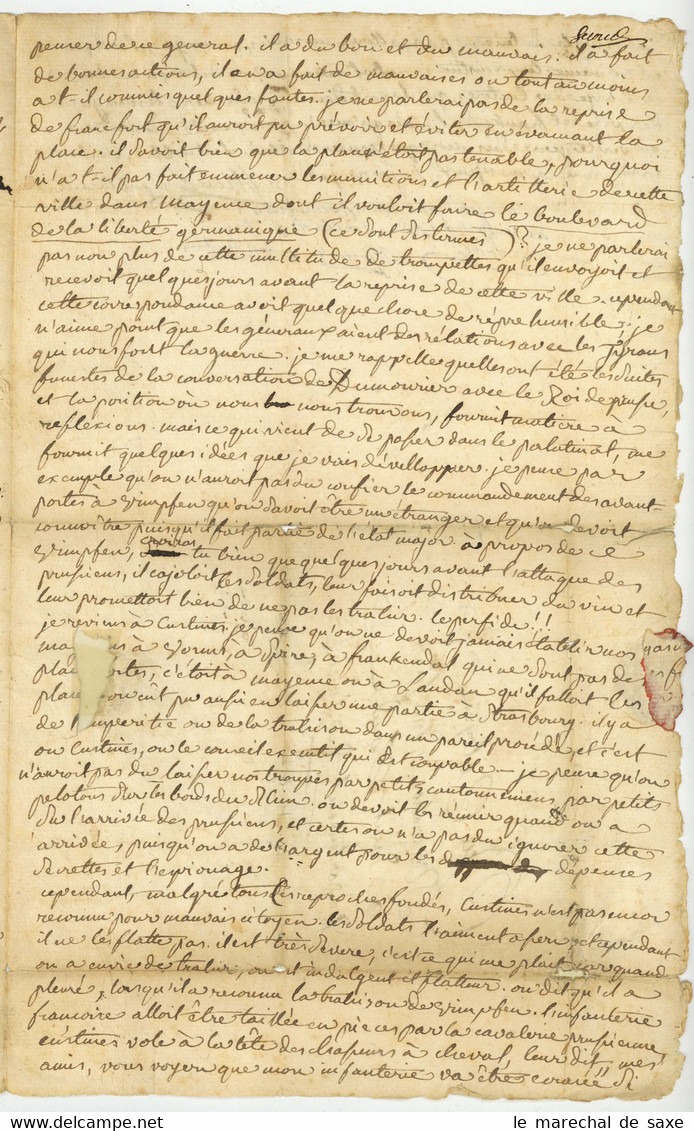 penser de ce general. il a du bon et du mauvais. il a fait
de bonnes actions, il en a fait de mauvaises ou tout au moins
a t-il commis quelques fautes. je ne parlerai pas de la reprise
de francfort qu'il auroit pu prévoir et éviter en évacuant la
place. il savoit bien que la place n'étoit pas tenable, pourquoi
n'a t-il pas fait emmener les munitions et l'artillerie de cette
ville dans mayence dont il vouloit faire le boulevard
de la liberté germanique (ce sont ses termes)? je ne parlerai
pas non plus de cette multitude de trompettes qu'il envoyoit et
recevoit quelques jours avant la reprise de cette ville. cependant
cette correspondance avoit quelque chose de répréhensible; je
n'aime point que les généraux aient des rélations avec les tyrans
qui nous font la guerre. je me rappelle quelles ont été les suites
funestes de la conversation de Dumourier avec le Roi de prusse,
et la position où nous nous trouvons, fournit matiere à
reflexions. mais ce qui vient de se passer dans le palatinat, me
fournit quelques idées que je vais développer. je pense par
exemple qu'on n'auroit pas du confier le commandement des avant-
postes à Wimpfen qu'on savoit être un étranger et qu'on devoit
connoitre puisqu'il fait partie de l'état major. à propos de ce
Wimpfen, tu bien que quelques jours avant l'attaque des
prussiens, il cajoloit les soldats, leur faisoit distribuer du vin et
leur promettoit bien de ne pas les trahir. le perfide!!
je reviens à Custines. je pense qu'on ne devoit jamais établir nos
à Worms, à Spire, à frankendal qui ne sont pas des
places fortes, c'étoit à mayence ou à Landau qu'il falloit les
on eut pu aussi en laisser une partie à Strasbourg. il y a
de l'imperitie ou de la trahison dans un pareil procédé, et c'est
ou Custines, ou le conseil executif qui est coupable. — je pense qu'on
n'auroit pas du laisser nos troupes par petits cantonnemens, par petits
pelotons sur les bords du Rhin. on devoit les réunir quand on a
su l'arrivée des prussiens, et certes on n'a pas du ignorer cette
arrivée, puisqu'on a de l'argent pour les dépenses
secrettes et l'espionage.
cependant, malgré tous ces reproches fondés, Custines n'est pas encor
reconnu pour mauvais citoyen. les soldats l'aiment assez, et cependant
il ne les flatte pas. il est très sévere, c'est ce qui me plait, car quand
on a envie de trahir, on est indulgent et flatteur. on dit qu'il a
pleuré, lorsqu'il a reconnu la trahison de Wimpfen. l'infanterie
francoise alloit être taillée en pieces par la cavalerie prussienne,
Custines vole à la tête des chasseurs à cheval, leur dit, mes
amis, vous voyez que mon infanterie va être écrasée si
le marechal de saxe